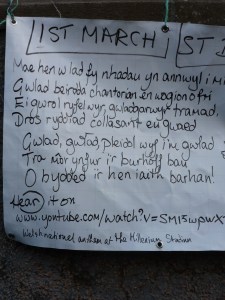 1ST MARCH
ST D
Mae hen wlad fy nhadau yn annwyl i mi
Gwlad beirdd a chantorion enwogion o fri
Ei gwrol ryfelwyr, gwladgarwyr tramad,
Dros ryddid collasant eu gwaed
Gwlad, gwlad, pleidiol wyf i'm gwlad
Tra môr yn fur i'r bur hoff bau
O bydded i'r hen iaith barhau!
Hear it on
www.youtube.com/watch?v=SM15wpwX
Welsh national anthem at the Millenium Stadium